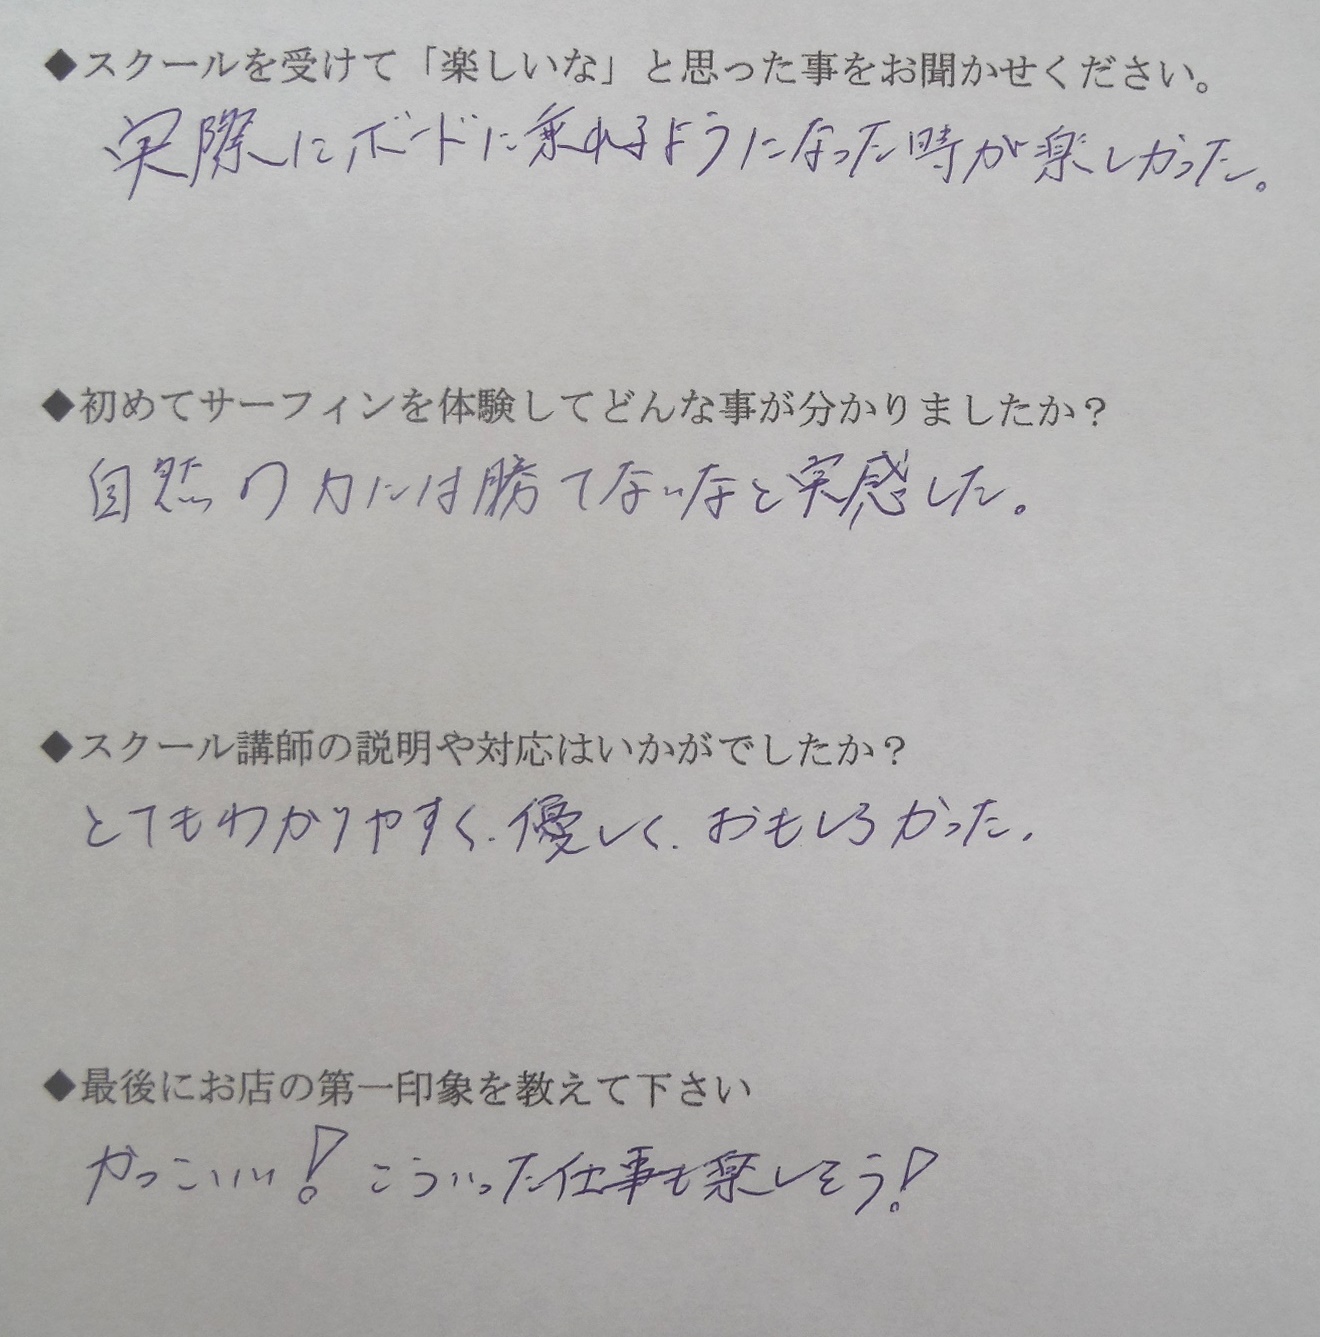 ◆スクールを受けて「楽しいな」と思った事をお聞かせください。
実際にボードに乗れるようになった時が楽しかった。
◆初めてサーフィンを体験してどんな事が分かりましたか？
自然の力には勝てないなと実感した。
◆スクール講師の説明や対応はいかがでしたか？
とてもわかりやすく、優しく、おもしろかった。
◆最後にお店の第一印象を教えて下さい
かっこいい！こういった仕事も楽しそう！